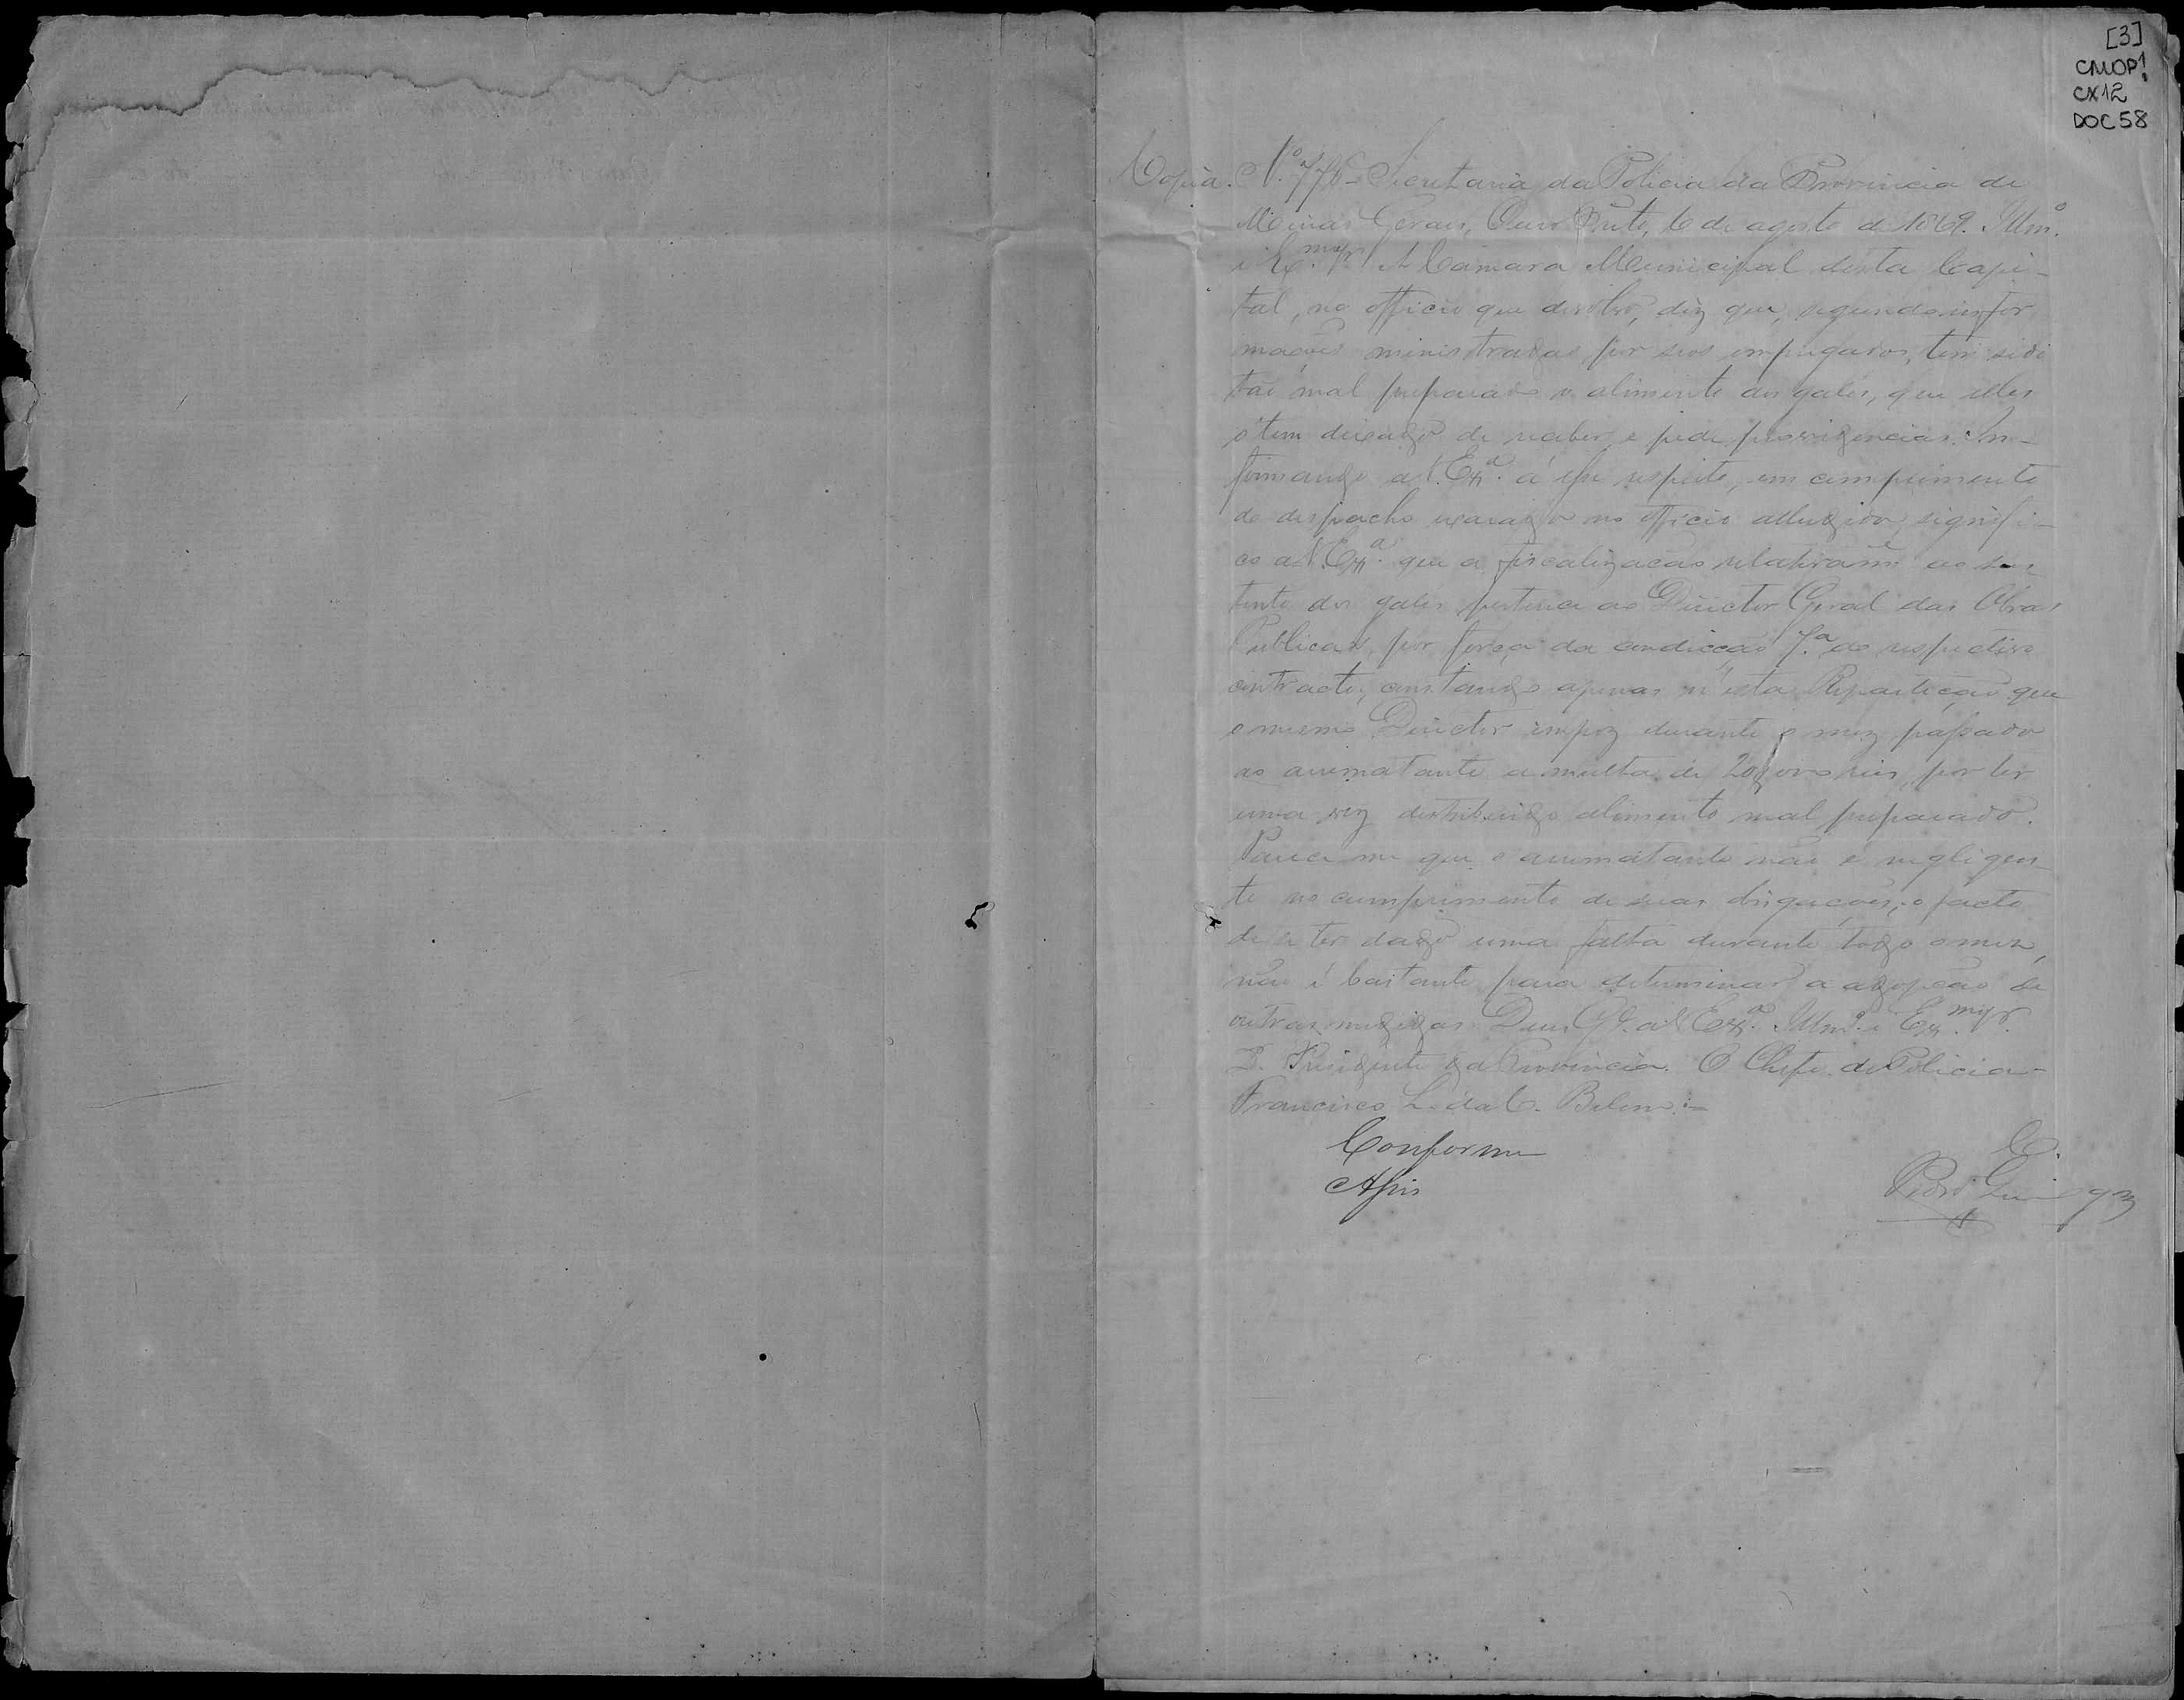 [3]
CMOP1
CX12
DOC 58
Copia. N.º Secretaria da Policia da Provincia de
Minas Geraes, Ouro Preto, 6 de agosto de 1869. Illm.º
e Ex.mo Sr. A Camara Municipal desta Capi-
tal, no officio que devolvo, diz que, segundo infor
mações ministradas por seos empregados, tem sido
tão mal preparado o alimento dos galés, que elles
o tem deixado de receber, e pede providencias. In-
formando a V. Ex.ª á esse respeito, em cumprimento
do despacho exarado no officio alludido, signifi-
co a V. Ex.ª que a fiscalização relativam.e ao sus-
tento dos galés pertence ao Director Geral das Obras
Publicas, por força da condicção 7.ª do respectivo
contracto, constando apenas n'esta Repartição que
o mesmo Director impoz durante o mez passado
ao arrematante a multa de 20$000 reis, por ter
uma vez distribuido alimento mal preparado.
Parece me que o arrematante não é negligen-
te no cumprimento de suas obrigações; o facto
de se ter dado uma falta durante todo o mez,
não é bastante para determinar a adopção de
outras medidas. Deus G.e a V. Ex.ª Illm.º e Ex.mo Sr.
D. Presidente da Provincia. O Chefe de Policia -
Francisco L. da C. Belem.=
Conforme
Assis